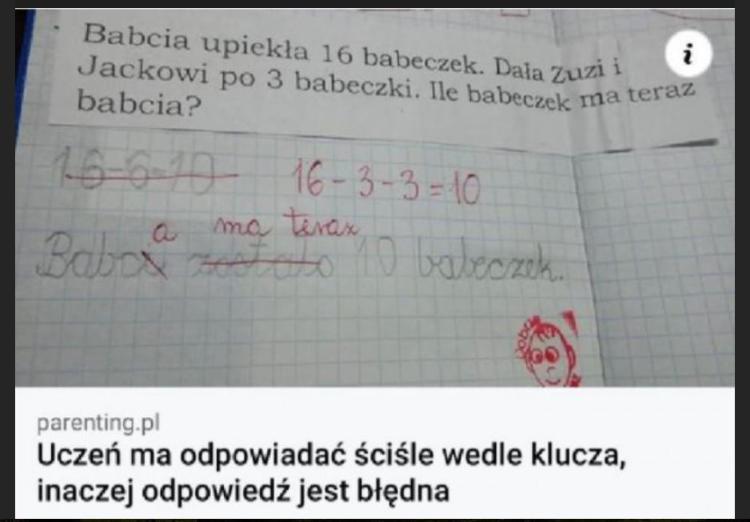 Babcia upiekła 16 babeczek. Dała Zuzi i
Jackowi po 3 babeczki. Ile babeczek ma teraz
babcia?
16-6=10
16-3-3=10
a ma teraz
Babci zostało 10 babeczek.
parenting.pl
Uczeń ma odpowiadać ściśle wedle klucza,
inaczej odpowiedź jest błędna